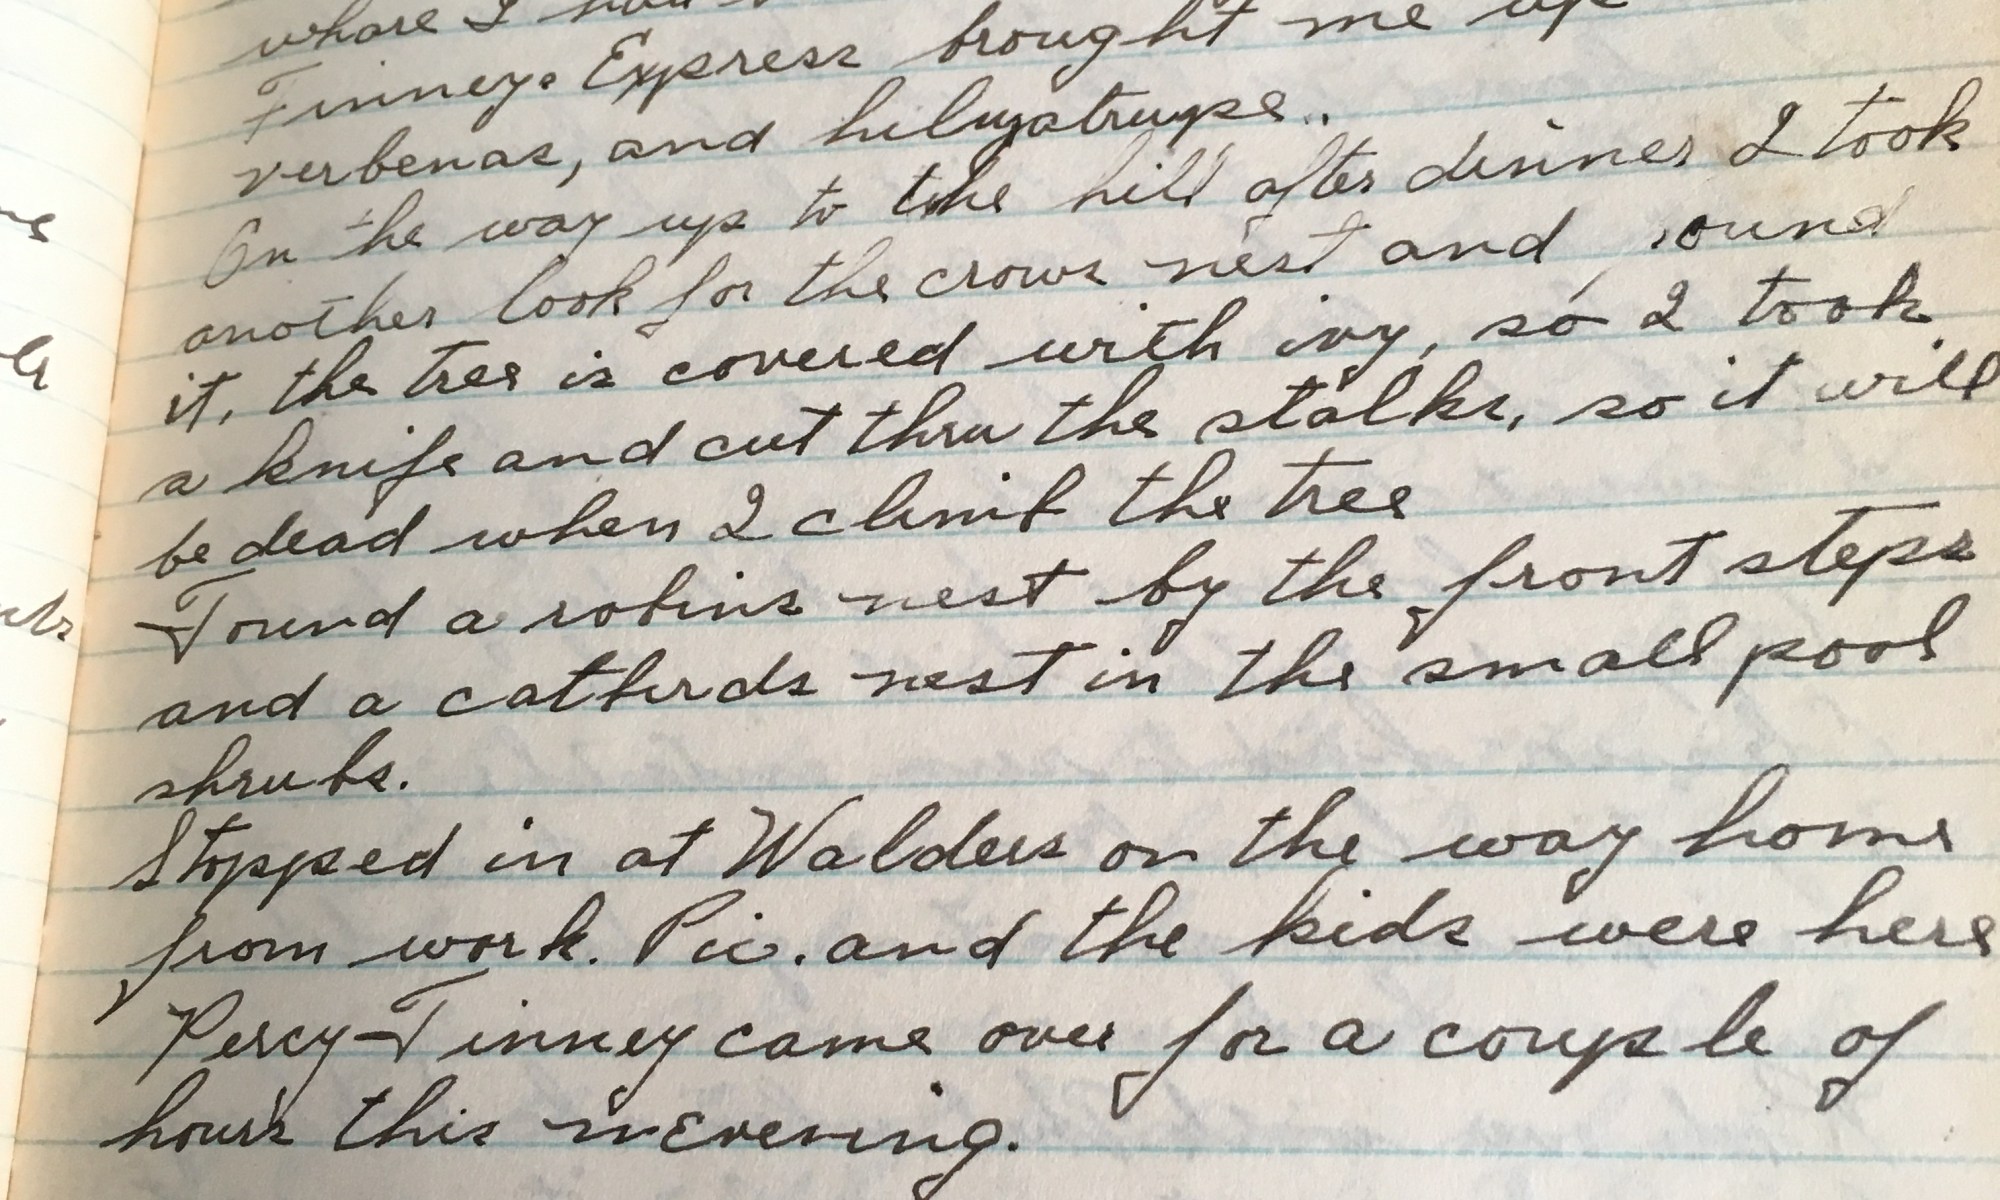 whare I
Finney. Express brought me up
verbenas, and
On the way up to the hill after dinner I took
another look for the crows nest and found
it, the tree is covered with ivy, so I took
a knife and cut thru the stalks, so it will
be dead when I climb the tree
Found a robins nest by the front steps
and a catbirds nest in the small pool
shrubs.
Stopped in at Walders on the way home
from work. Pic. and the kids were here
Percy Finney came over for a couple of
hours this evening.